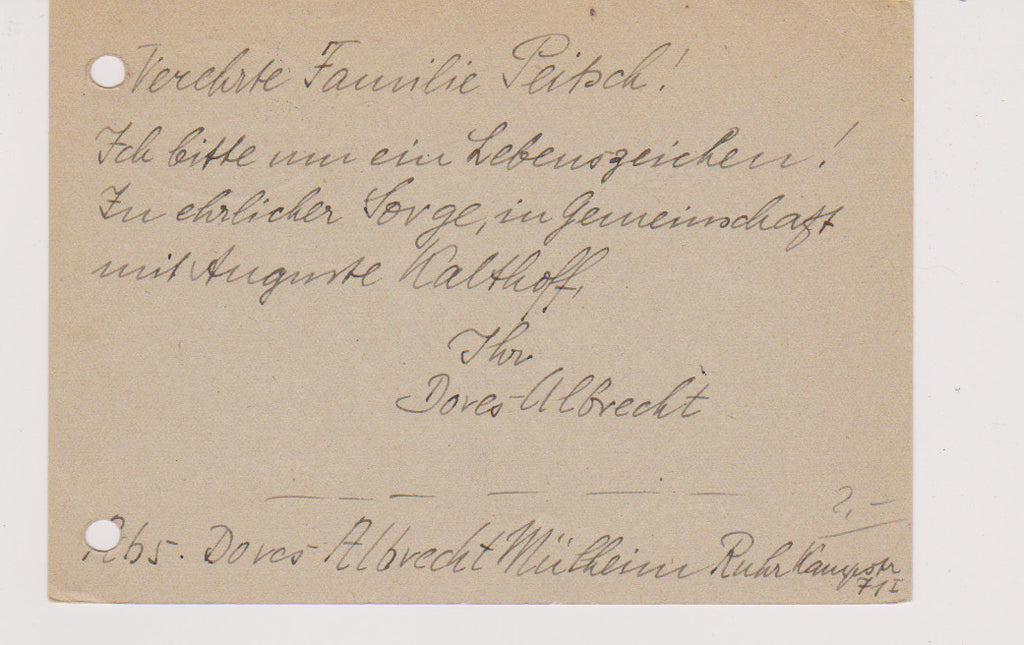 Verehrte Familie Peitsch!
Ich bitte um ein Lebenszeichen!
In ehrlicher Sorge, in Gemeinschaft
mit Auguste Kalthoff,
Ihr
Dores Albrecht
2.-
Abs. Dores Albrecht Mülheim Ruhr Kampstr
71 I